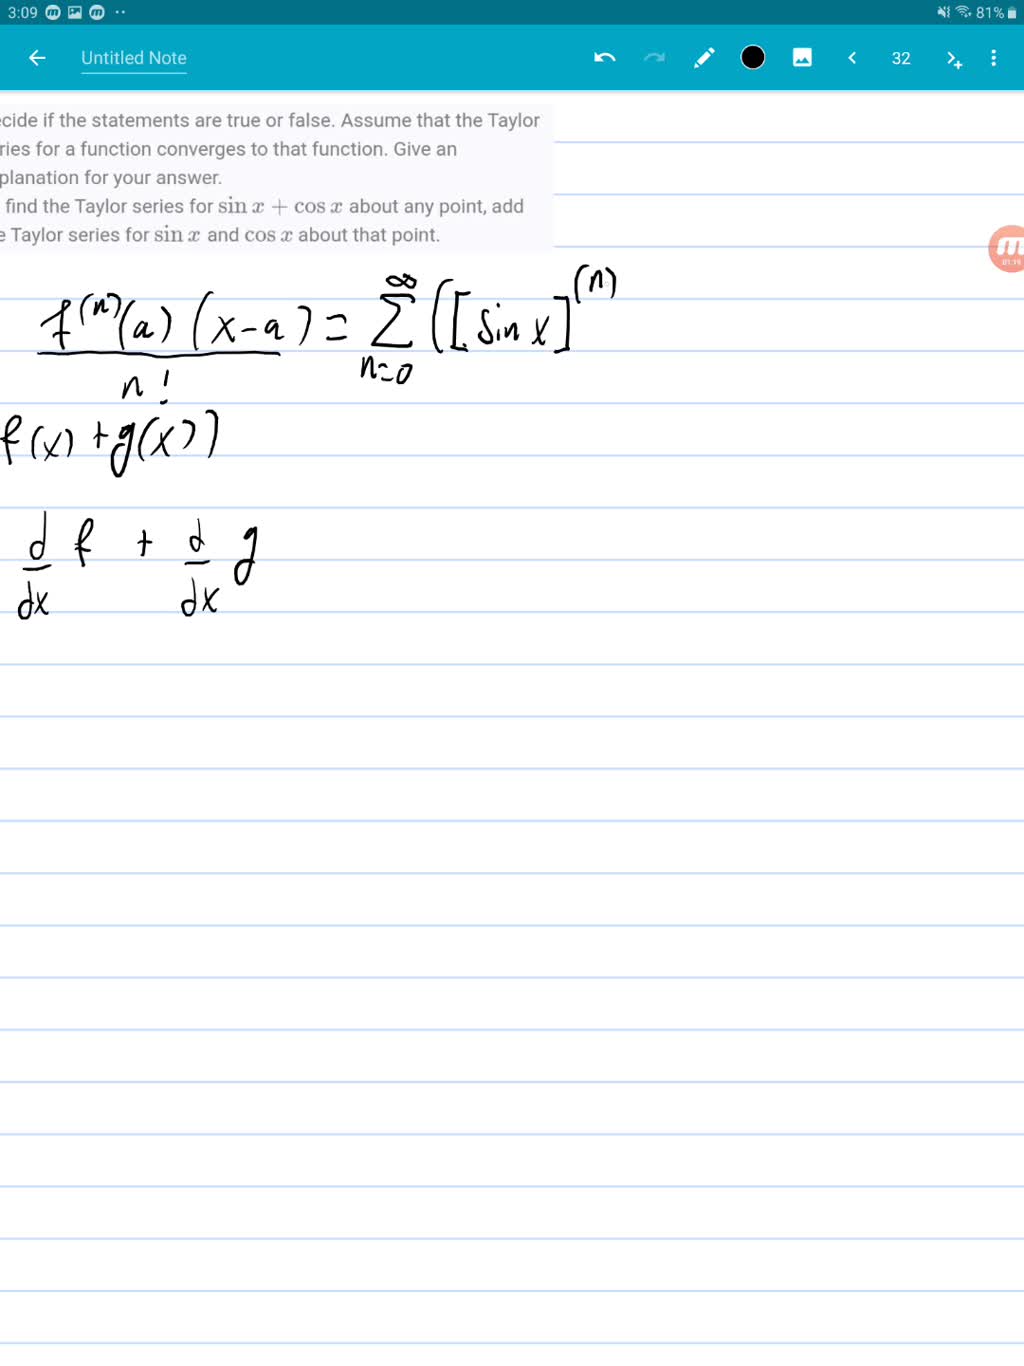 3:09 81%
Untitled Note 32
cide if the statements are true or false. Assume that the Taylor
ries for a function converges to that function. Give an
planation for your answer.
find the Taylor series for sin x + cos x about any point, add
e Taylor series for sin x and cos x about that point.
01:19
f^(n)(a)(x-a)/n! = ∑_{n=0}^{∞} ([sin x]^(n)
f(x) + g(x))
d/dx f + d/dx g